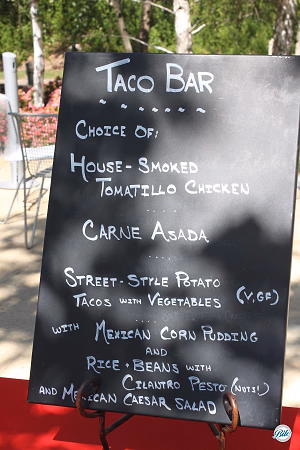 TACO BAR
~ ~ ~ ~ ~
CHOICE OF:
HOUSE-SMOKED
TOMATILLO CHICKEN
....
CARNE ASADA
....
STREET-STYLE POTATO
TACOS WITH VEGETABLES (V,GF)
....
WITH MEXICAN CORN PUDDING
AND
RICE + BEANS WITH
CILANTRO PESTO (NUTS!)
AND MEXICAN CAESAR SALAD
Bite